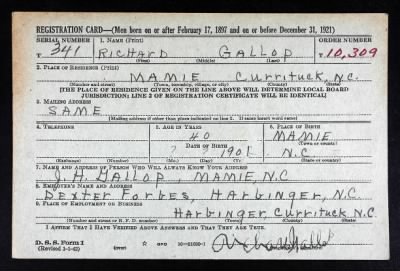 REGISTRATION CARD—(Men born on or after February 17, 1897 and on or before December 31, 1921)
SERIAL NUMBER 1. NAME (Print) ORDER NUMBER
T 341 RICHARD GALLOP T 10,309
(First) (Middle) (Last)
2. PLACE OF RESIDENCE (Print)
MAMIE Currituck, N.C.
(Number and street) (Town, township, village, or city) (County) (State)
[THE PLACE OF RESIDENCE GIVEN ON THE LINE ABOVE WILL DETERMINE LOCAL BOARD
JURISDICTION; LINE 2 OF REGISTRATION CERTIFICATE WILL BE IDENTICAL]
3. MAILING ADDRESS
SAME
[Mailing address if other than place indicated on line 2. If same insert word same]
4. TELEPHONE 5. AGE IN YEARS 6. PLACE OF BIRTH
40 MAMIE
DATE OF BIRTH (Town or county)
? ? 1901 N.C
(Exchange) (Number) (Mo.) (Day) (Yr.) (State or country)
7. NAME AND ADDRESS OF PERSON WHO WILL ALWAYS KNOW YOUR ADDRESS
J. H. GALLOP MAMIE, N.C
8. EMPLOYER'S NAME AND ADDRESS
DEXTER FORBES, HARBINGER, N.C.
9. PLACE OF EMPLOYMENT OR BUSINESS
HARBINGER, CURRITUCK N.C
(Number and street or R. F. D. number) (Town) (County) (State)
I AFFIRM THAT I HAVE VERIFIED ABOVE ANSWERS AND THAT THEY ARE TRUE.
D. S. S. Form 1
(Revised 1-1-42) (over) Richard Gallop
(Registrant's signature)